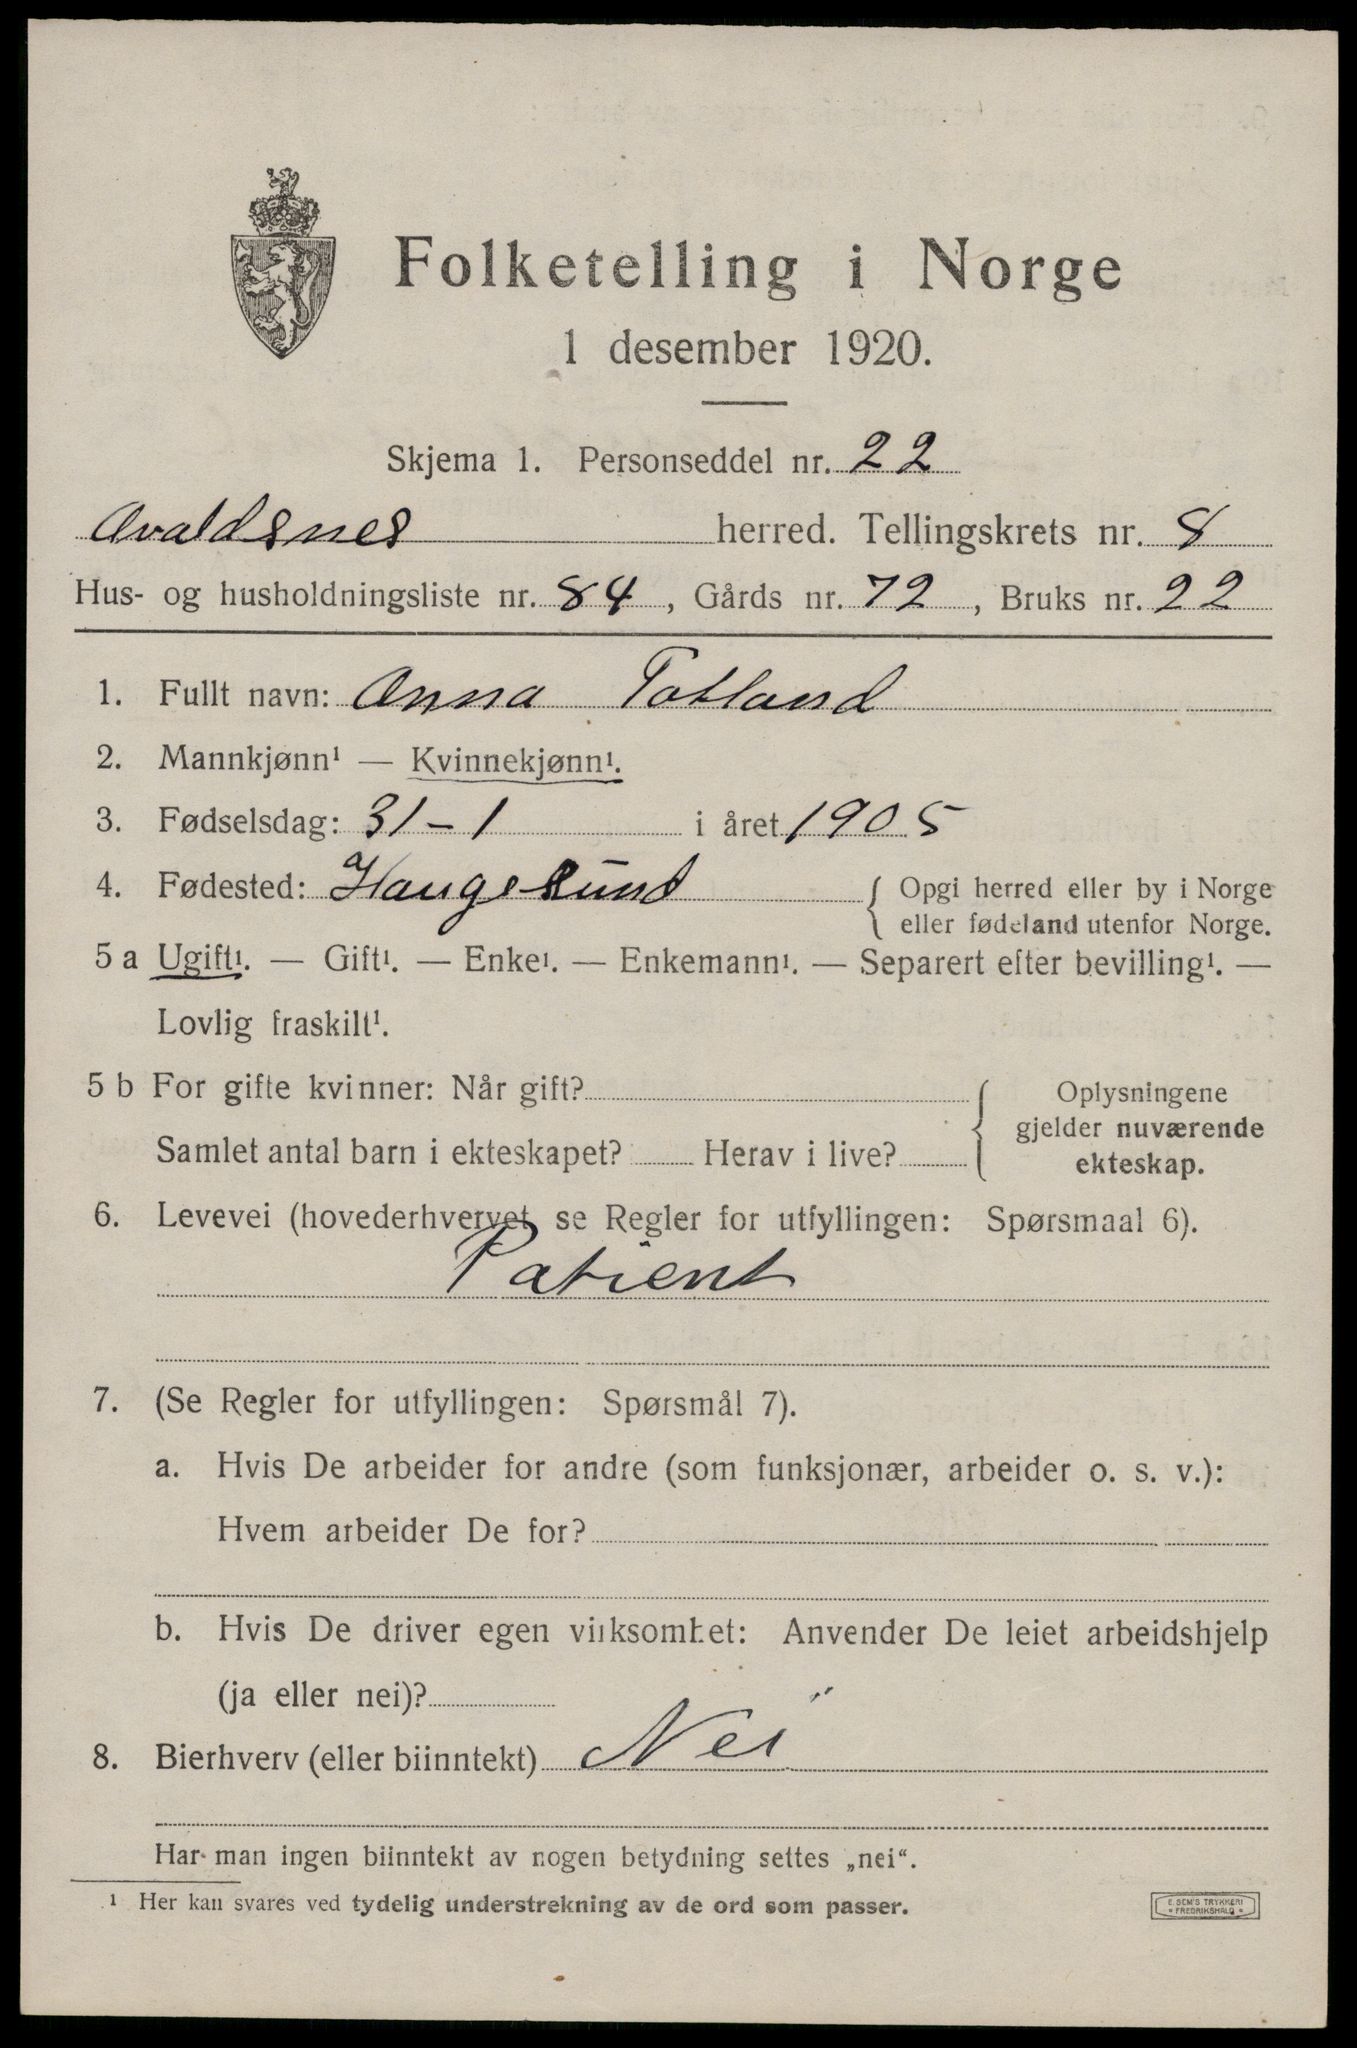 Folketelling i Norge
1 desember 1920.
Skjema 1. Personseddel nr. 22
Avaldsnes herred. Tellingskrets nr. 8
Hus- og husholdningsliste nr. 84, Gårds nr. 72, Bruks nr. 22
1. Fullt navn: Anna Totland
2. Mannkjønn¹ — Kvinnekjønn¹.
3. Fødselsdag: 31-1 i året 1905
4. Fødested: Haugesund { Opgi herred eller by i Norge
eller fødeland utenfor Norge.
5 a Ugift¹. — Gift¹. — Enke¹. — Enkemann¹. — Separert efter bevilling¹. —
Lovlig fraskilt¹.
5 b For gifte kvinner: Når gift?
Samlet antal barn i ekteskapet? Herav i live?
{ Oplysningene
gjelder nuværende
ekteskap.
6. Levevei (hovederhvervet, se Regler for utfyllingen: Spørsmaal 6).
Patient
7. (Se Regler for utfyllingen: Spørsmål 7).
a. Hvis De arbeider for andre (som funksjonær, arbeider o. s. v.):
Hvem arbeider De for?
b. Hvis De driver egen virksomhet: Anvender De leiet arbeidshjelp
(ja eller nei)?
8. Bierhverv (eller biinntekt) Nei
Har man ingen biinntekt av nogen betydning settes „nei“.
¹ Her kan svares ved tydelig understrekning av de ord som passer.
E. SEM'S TRYKKERI
FREDRIKSHALD